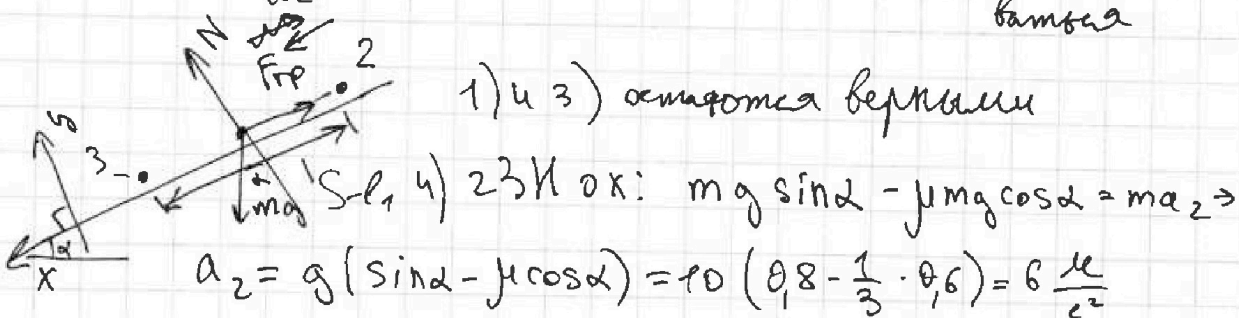 ваться
N
Fтр
2
1) и 3) остаются верными
y
3
S-l₁ 4) 2ЗН ох: mg sinα - μmg cosα = ma₂ ⇒
mg
α
x
a₂ = g(sinα - μcosα) = 10 (0,8 - 1/3 · 0,6) = 6 м/с²